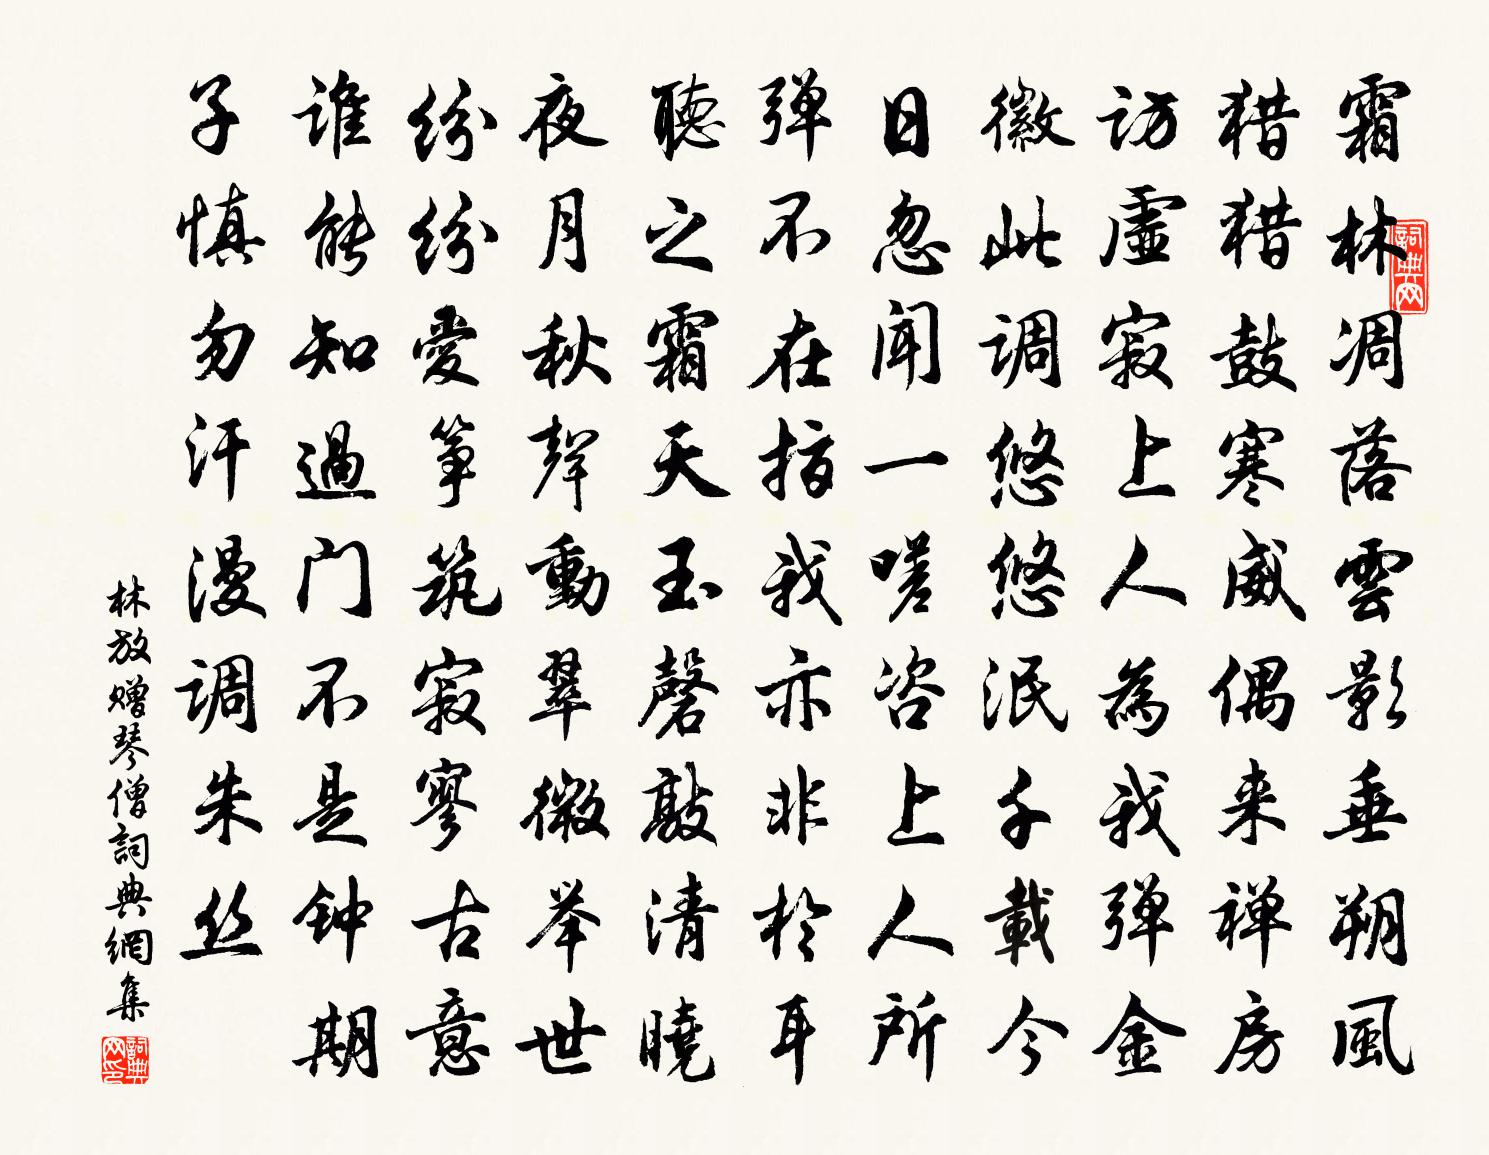 霜林凋落雲影垂朔風
猎猎鼓寒威偶来禅房
访虛寂上人為我弹金
徽此调悠悠泯千載今
日忽聞一嗟咨上人所
弹不在指我亦非於耳
聽之霜天玉磬敲清曉
夜月秋聲動翠微举世
纷纷愛筝筑寂寥古意
谁能知過门不是钟期
子慎勿汗漫调朱丝
林放赠琴僧詞典網集
詞典网
詞典网印